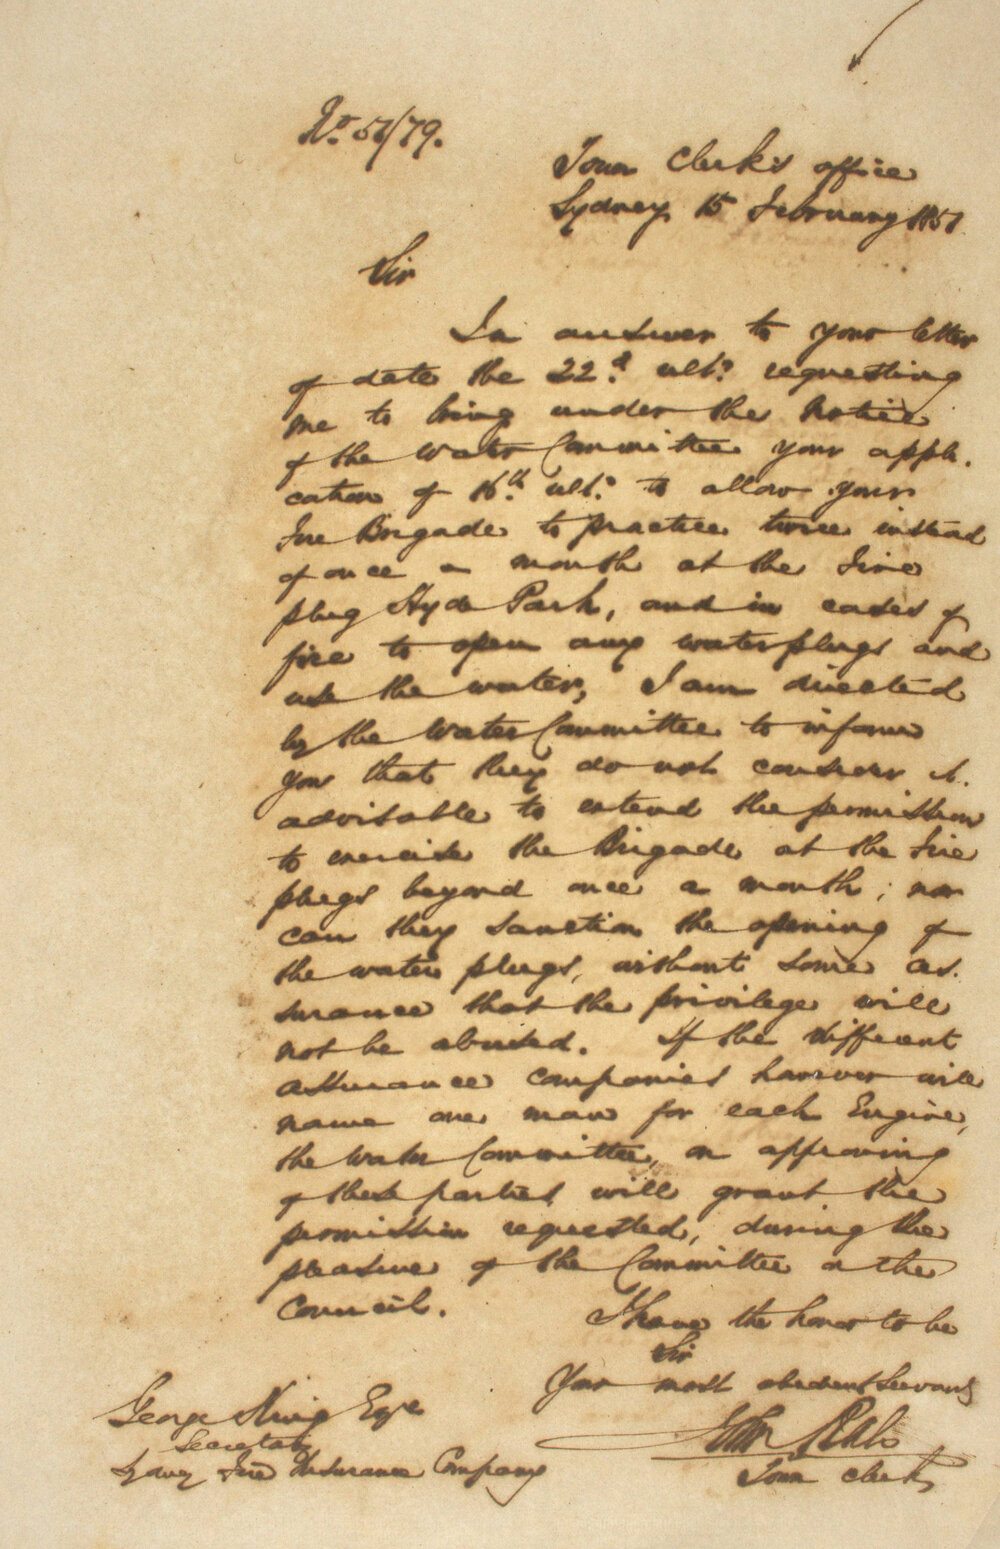 No. 51/79.
Town Clerk's office
Sydney 15 February 1851
Sir
In answer to your letter
of date the 22d. ult°. requesting
me to bring under the notice
of the Water Committee your appli-
cation of 16th. ult°. to allow your
Fire Brigade to practice twice instead
of once a month at the Fire
plug Hyde Park, and in cases of
fire to open any water plugs and
use the water, I am directed
by the Water Committee to inform
you that they do not consider it
advisable to extend the permission
to exercise the Brigade at the Fire
plugs beyond once a month; nor
can they sanction the opening of
the water plugs, without some as-
surance that the privilege will
not be abused. If the different
assurance companies however will
name one man for each Engine,
the Water Committee, on approving
of these parties, will grant the
permission requested, during the
pleasure of the Committee or the
Council.
I have the honor to be
Sir
Your most obedient Servant
John Rae
Town Clerk
George King Esqe
Secretary
Sydney Fire Insurance Company